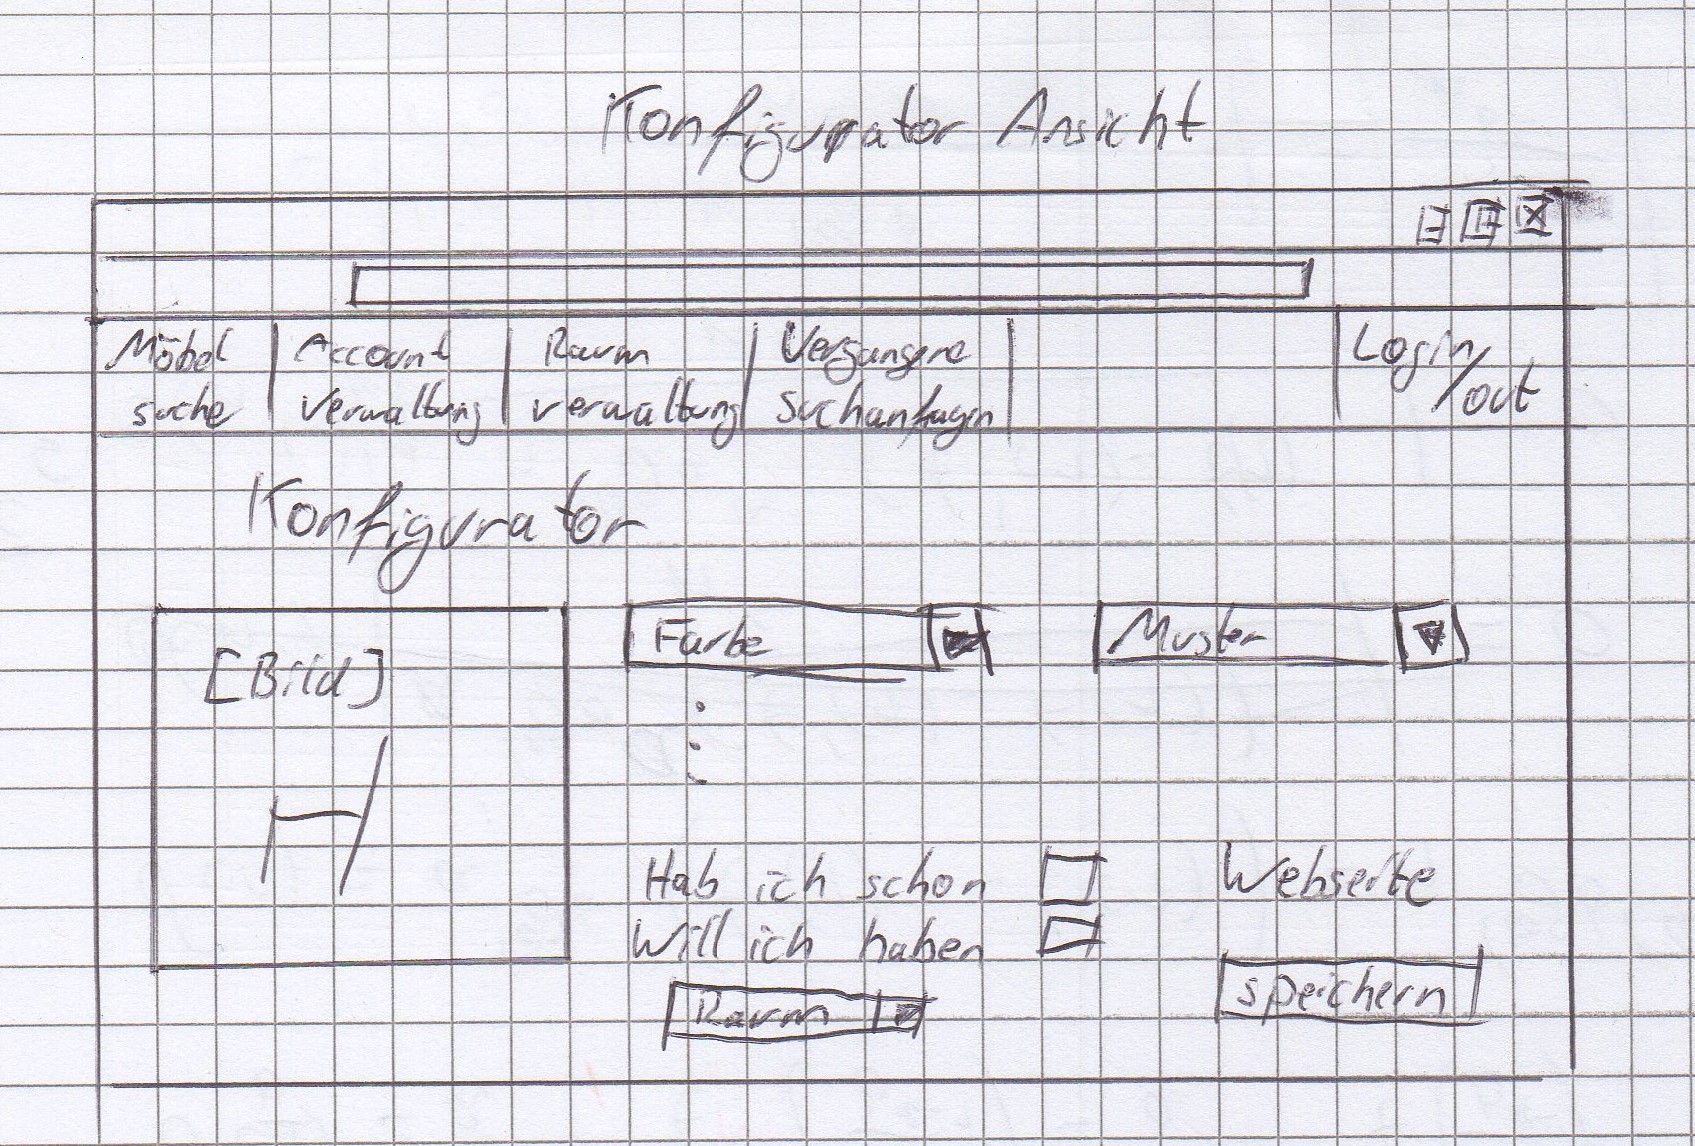 Konfigurator Ansicht
Möbel
suche
Account
verwaltung
Raum
verwaltung
Vergangene
Suchanfragen
Login/out
Konfigurator
[Bild]
Farbe
Muster
Hab ich schon
Webseite
Will ich haben
Raum
speichern